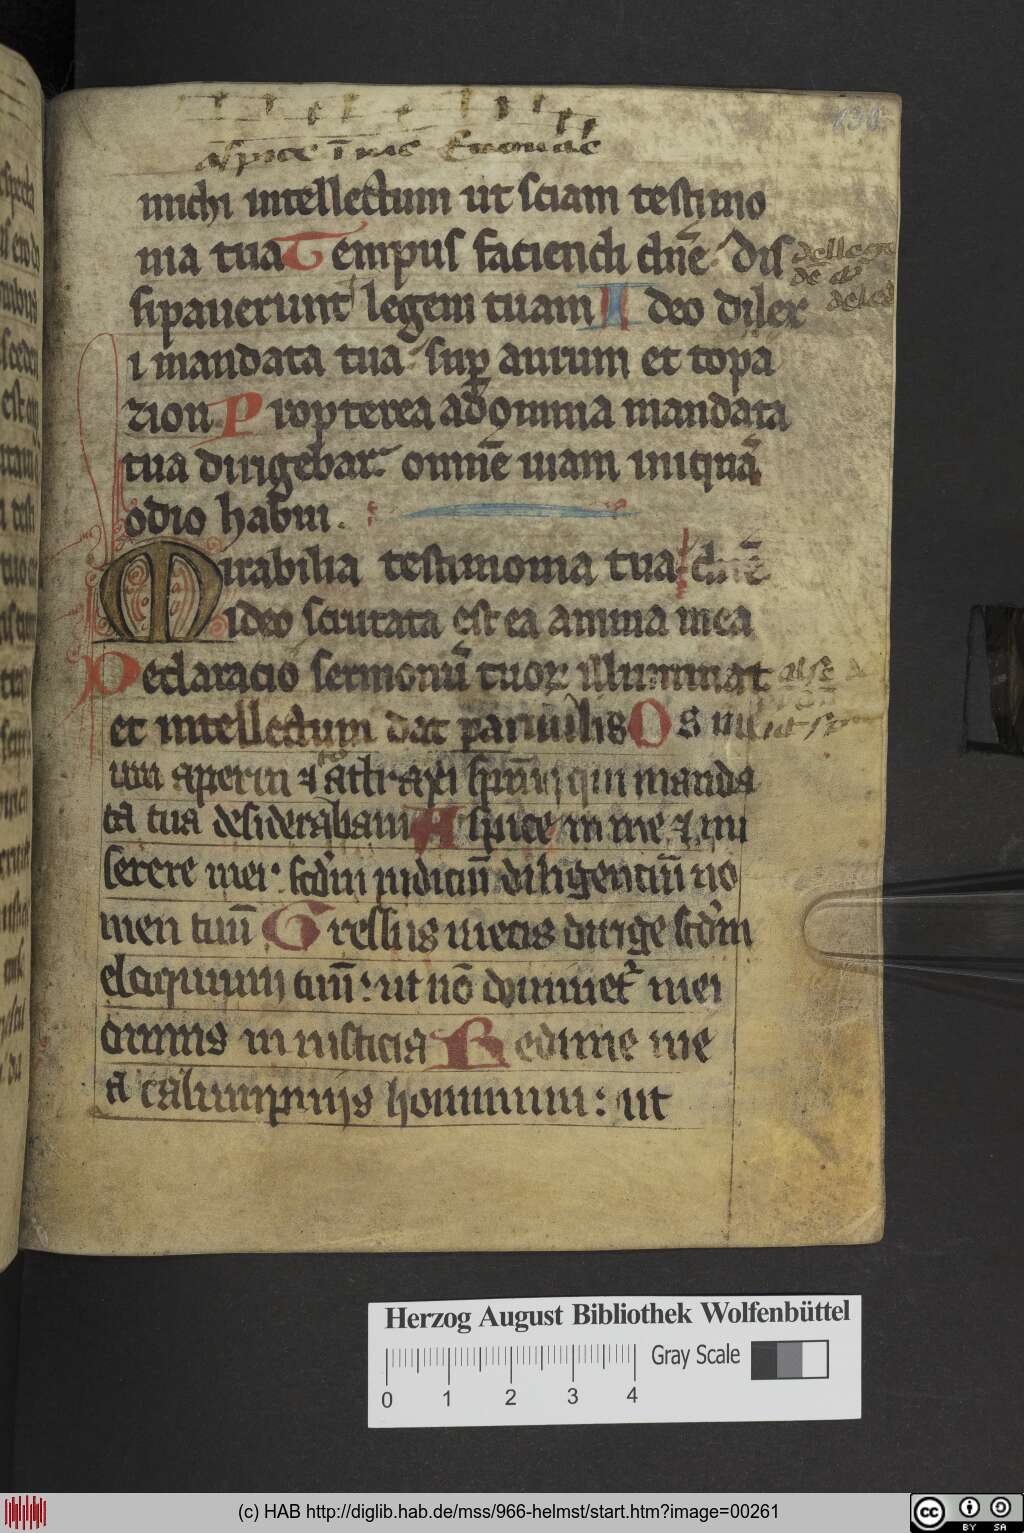 130.
aspice in me Euouae
michi intellectum ut sciam testimo
nia tua Tempus faciendi dn̄e dis
sipauerunt legem tuam Ideo dilex
i mandata tua sup aurum et topa
zion Propterea ad omnia mandata
tua dirigebar omnē uiam iniquā
odio habui.
Mirabilia testimonia tua dn̄e
ideo scrutata est ea anima mea
Declaracio sermonū tuor illuminat
et intellectum dat paruulis Os m
um aperui ⁊ attraxi spm̄ qui manda
ta tua desiderabam Aspice in me ⁊ mi
serere mei scdm iudiciū diligenciū no
men tuū Gressus meos dirige scdm
eloquium tuū: ut nō dominet mei
omnis iniusticia Redime me
a calumpniis hominum: ut
Herzog August Bibliothek Wolfenbüttel
Gray Scale
0 1 2 3 4
(c) HAB http://diglib.hab.de/mss/966-helmst/start.htm?image=00261
cc BY SA